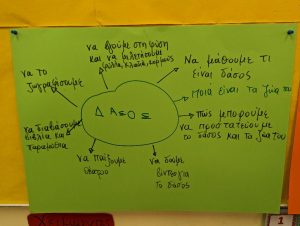 να βρούμε στη φύση
και να μελετήσουμε
φύλλα, κλαδιά, κορμούς
Να μάθουμε τι
είναι δάσος
Ποιά είναι τα ζώα του
Πώς μπορούμε
να προστατεύσουμε
το δάσος και τα ζώα του
να δούμε
βίντεο για
το δάσος
να παίξουμε
θέατρο
να διαβάσουμε
βιβλία και
παραμύθια
να το
ζωγραφίσουμε
ΔΑΣΟΣ
1